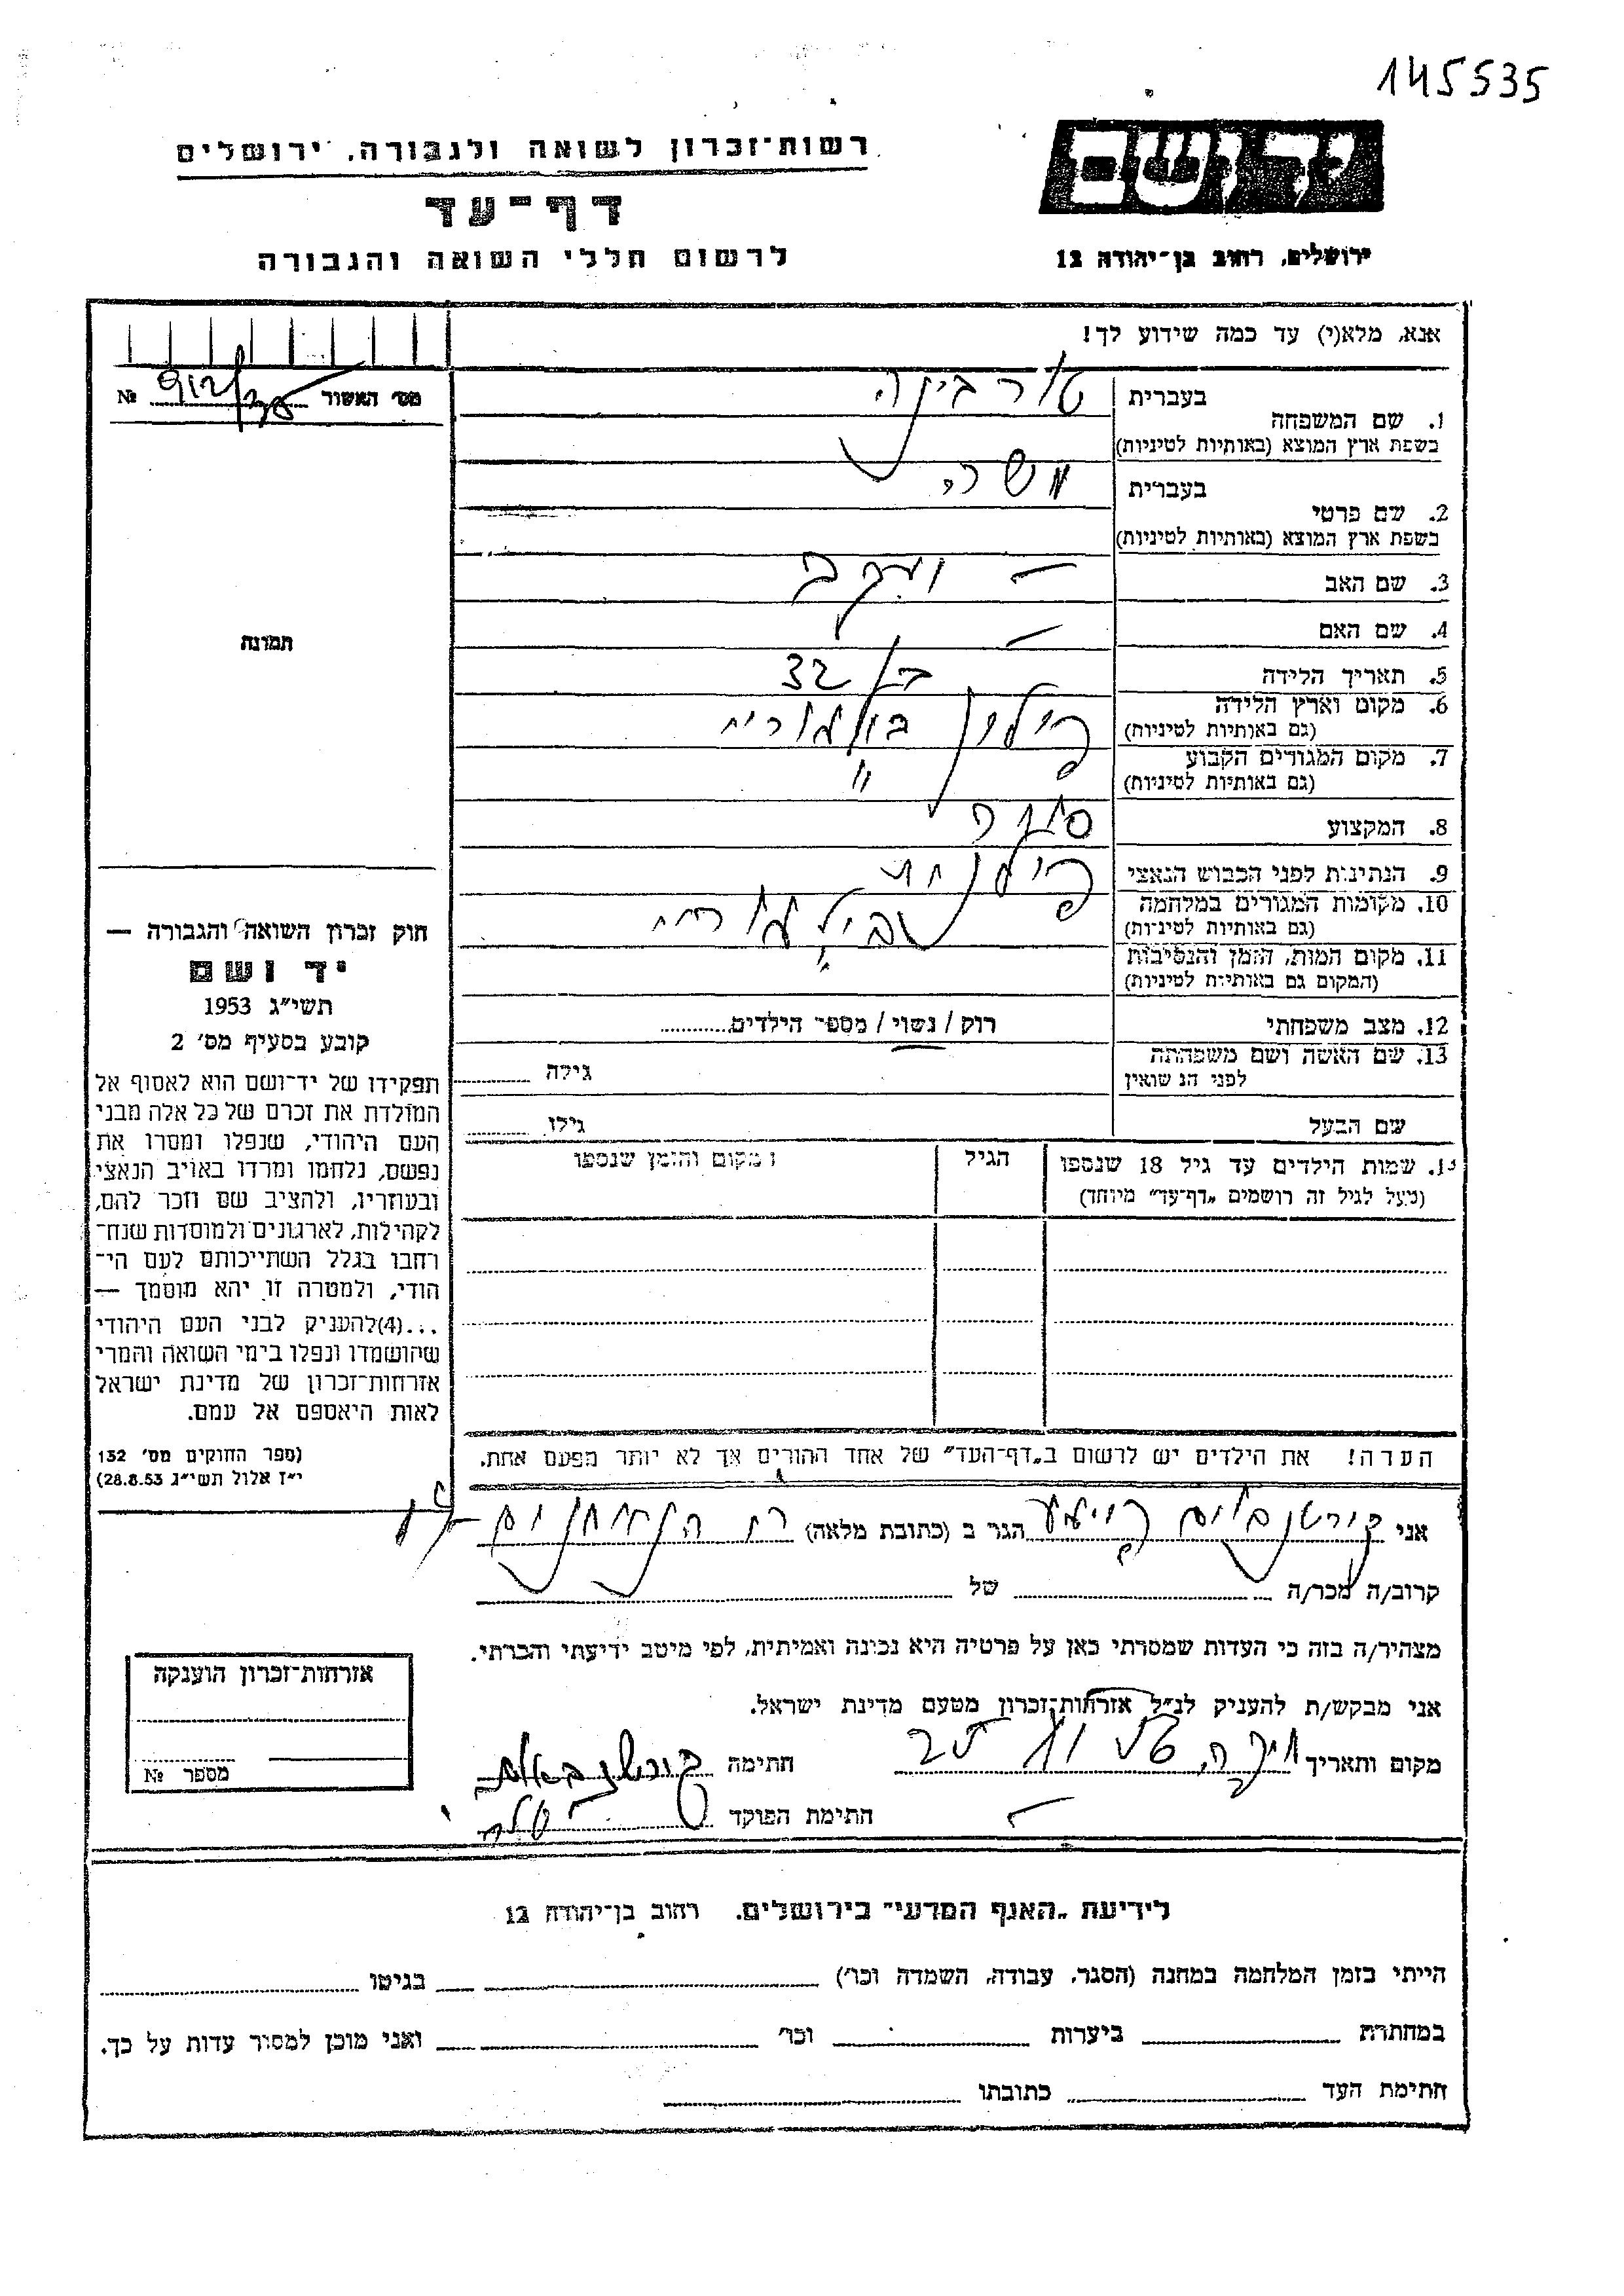 145535
יד ושם
רשות־זכרון לשואה ולגבורה, ירושלים
דף־עד
לרשום חללי השואה והגבורה
ירושלים, רחוב בן־יהודה 12
אנא, מלא(י) עד כמה שידוע לך!
מס׳ האשור № 912/
1. שם המשפחה
בעברית
בשפת ארץ המוצא (באותיות לטיניות)
2. שם פרטי
בעברית משה
בשפת ארץ המוצא (באותיות לטיניות)
3. שם האב — יעקב
4. שם האם —
5. תאריך הלידה בן 32
6. מקום וארץ הלידה
(גם באותיות לטיניות)
7. מקום המגורים הקבוע "
(גם באותיות לטיניות)
8. המקצוע
9. הנתינות לפני הכבוש הנאצי
10. מקומות המגורים במלחמה
(גם באותיות לטיניות)
11. מקום המות, הזמן והנסיבות
(המקום גם באותיות לטיניות)
12. מצב משפחתי רוק / נשוי / מספר הילדים
13. שם האשה ושם משפחתה
לפני הנשואין
גילה
שם הבעל גילו
שמות הילדים עד גיל 18 שנספו
(מעל לגיל זה רושמים „דף־עד" מיוחד)
הגיל
מקום והזמן שנספו
הערה! את הילדים יש לרשום ב„דף־העד" של אחד ההורים אך לא יותר מפעם אחת.
תמונה
חוק זכרון השואה והגבורה —
יד ושם
תשי״ג 1953
קובע בסעיף מס׳ 2
תפקידו של יד־ושם הוא לאסוף אל
המולדת את זכרם של כל אלה מבני
העם היהודי, שנפלו ומסרו את
נפשם, נלחמו ומרדו באויב הנאצי
ובעוזריו, ולהציב שם וזכר להם,
לקהילות, לארגונים ולמוסדות שנח־
רחבו בגלל השתייכותם לעם הי־
הודי, ולמטרה זו יהא מוסמך —
...(4)להעניק לבני העם היהודי
שהושמדו ונפלו בימי השואה והמרי
אזרחות־זכרון של מדינת ישראל
לאות היאספם אל עמם.
(ספר החוקים מס׳ 132
י״ז אלול תשי״ג 28.8.53)
אני הגר ב (כתובת מלאה)
קרוב/ה מכר/ה של
מצהיר/ה בזה כי העדות שמסרתי כאן על פרטיה היא נכונה ואמיתית, לפי מיטב ידיעתי והכרתי.
אני מבקש/ת להעניק לנ״ל אזרחות־זכרון מטעם מדינת ישראל.
מקום ותאריך חתימה
חתימת הפוקד
אזרחות־זכרון הוענקה
מספר №
לידיעת „האגף המדעי" בירושלים, רחוב בן־יהודה 12
הייתי בזמן המלחמה במחנה (הסגר, עבודה, השמדה וכו׳) בגיטו
במחתרת ביערות וכו׳ ואני מוכן למסור עדות על כך.
חתימת העד כתובתו